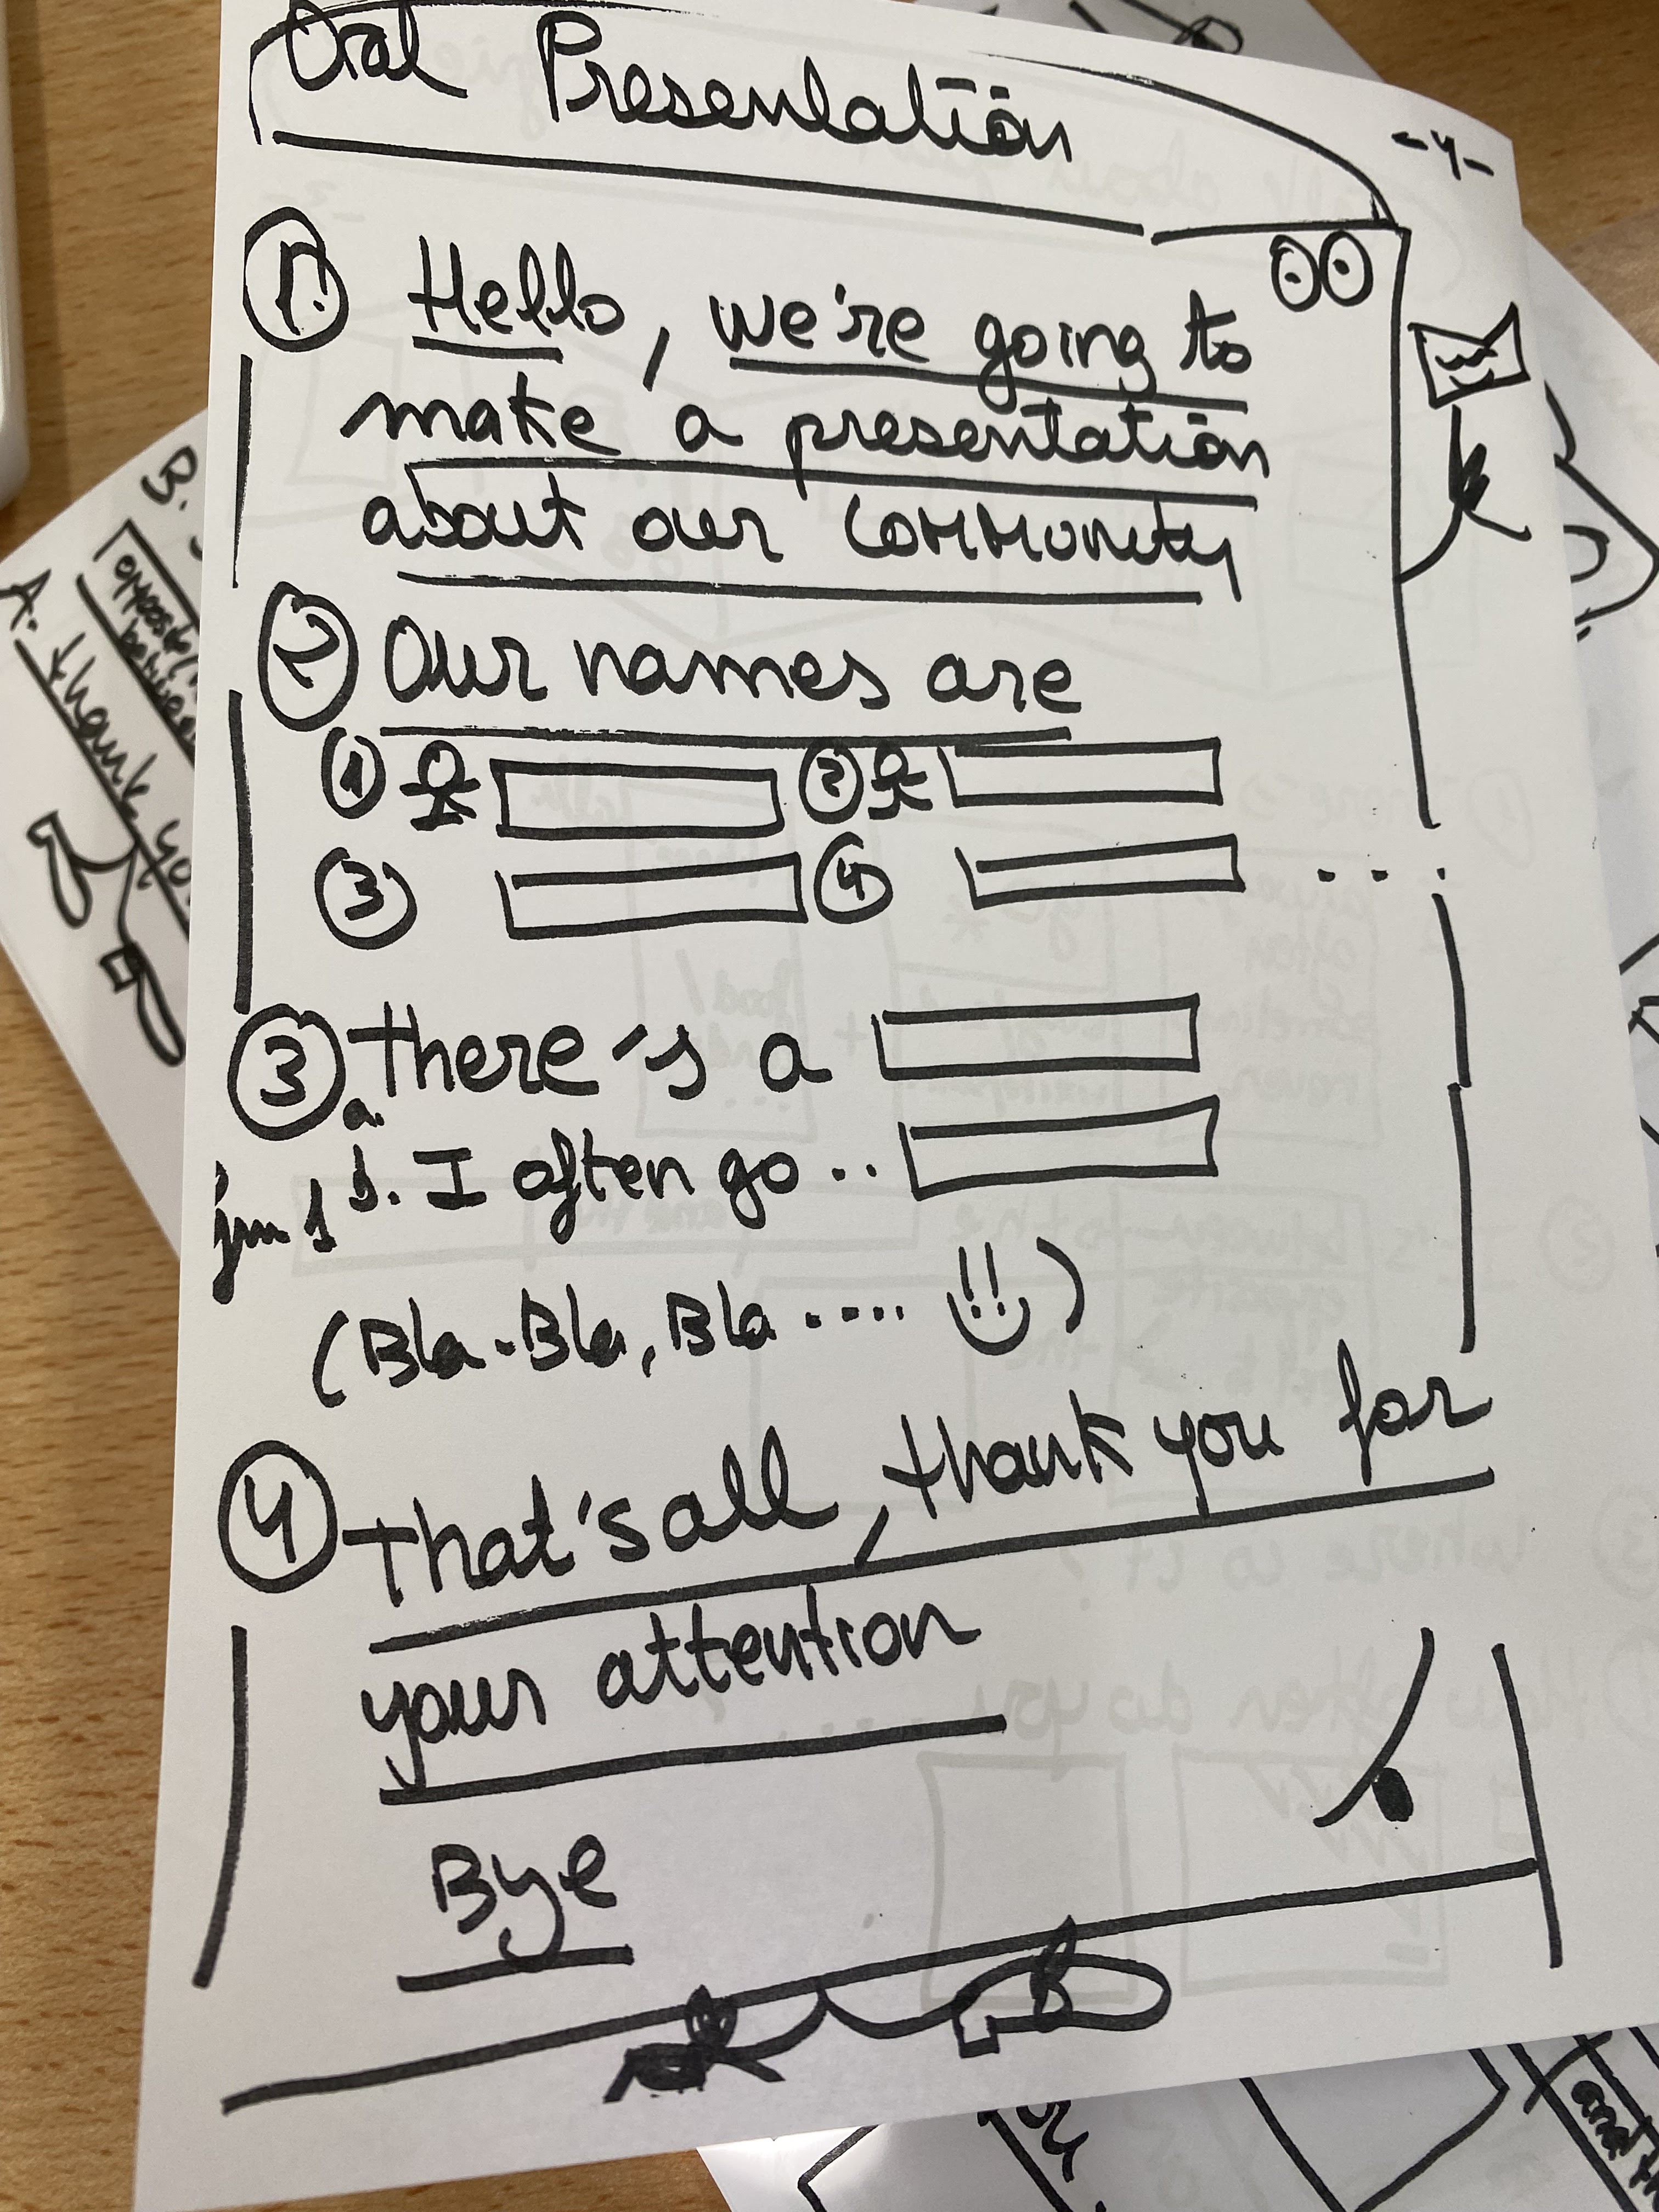 Oral Presentation
-4-
1. Hello, we're going to
make a presentation
about our community
2 Our names are
1 2
3 4 ...
3 a. there's a
b. I often go ..
(Bla-Bla, Bla .... )
4 that's all, thank you for
your attention
Bye
B.
A. thank yo